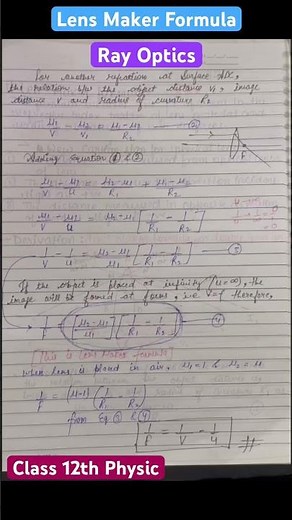 Lens Maker Formula
Ray Optics
For another refraction at Surface ADC,
the relation b/w the object distance V₁, image
distance V and radius of curvature R₂
μ₁/V - μ₂/V₁ = μ₁-μ₂/R₂ ②
Adding Equation ① & ②
= μ₂-μ₁/R₁ + μ₁-μ₂/R₂
= μ₂-μ₁ [1/R₁ - 1/R₂]
1/V - 1/u = μ₂-μ₁/μ₁ [1/R₁ - 1/R₂] ③
If the object is placed at infinity (u=∞), the
image will be formed at focus, i.e V=f therefore,
1/f = [μ₂-μ₁/μ₁] [1/R₁ - 1/R₂] ④
[This is Lens Maker formula]
when lens is placed in air, μ₁=1 & μ₂=μ
1/F = (μ-1) (1/R₁ - 1/R₂)
from Eq ③ & ④
1/F = 1/V - 1/u
Class 12th Physic